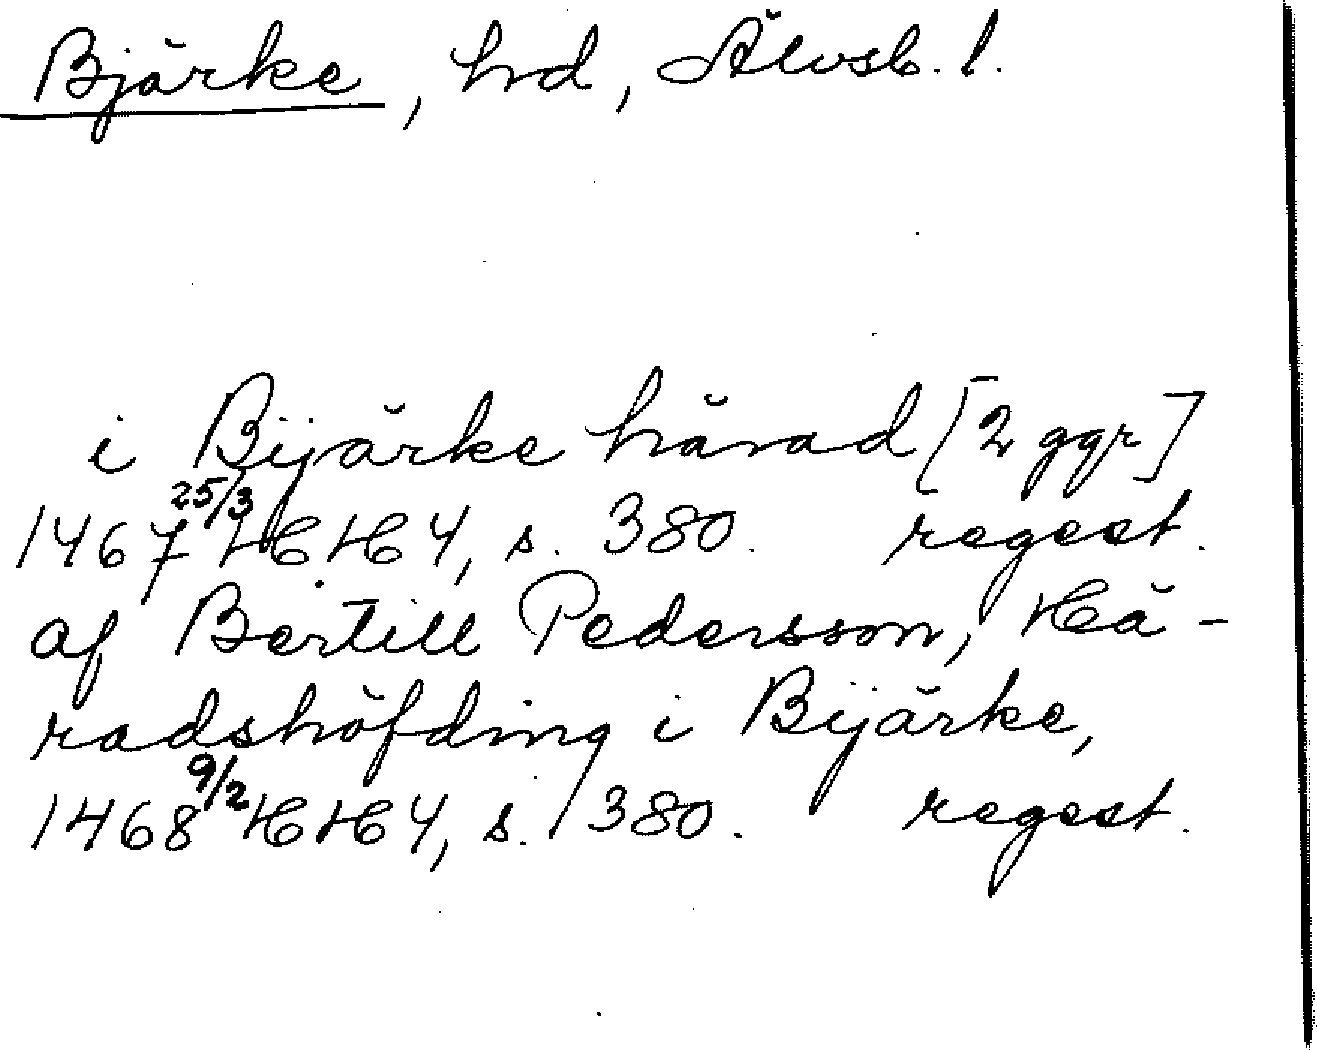 Bjärke, hd, Älvsb. l.
i Bijärke härad [2 ggr]
1467 25/3 HH 4, s. 380. regest.
af Bertill Pedersson, Hä-
radshöfding i Bijärke,
1468 9/2 HH 4, s. 380. regest.